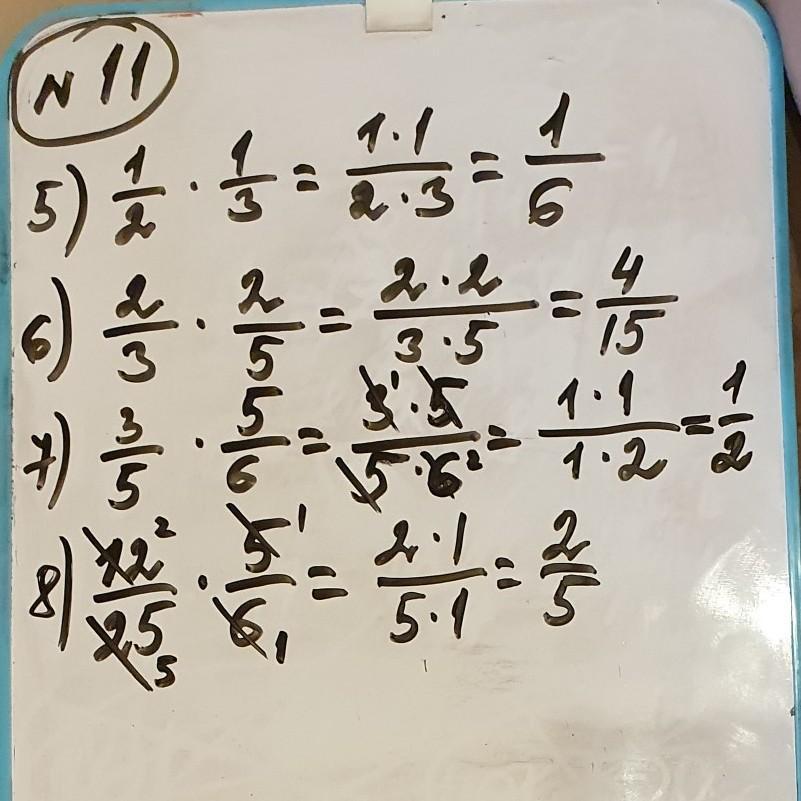 N 11
5) 1/2 · 1/3 = 1·1/2·3 = 1/6
6) 2/3 · 2/5 = 2·2/3·5 = 4/15
7) 3/5 · 5/6 = 3¹·5/5·6² = 1·1/1·2 = 1/2
8) 12²/25₅ · 5¹/6₁ = 2·1/5·1 = 2/5